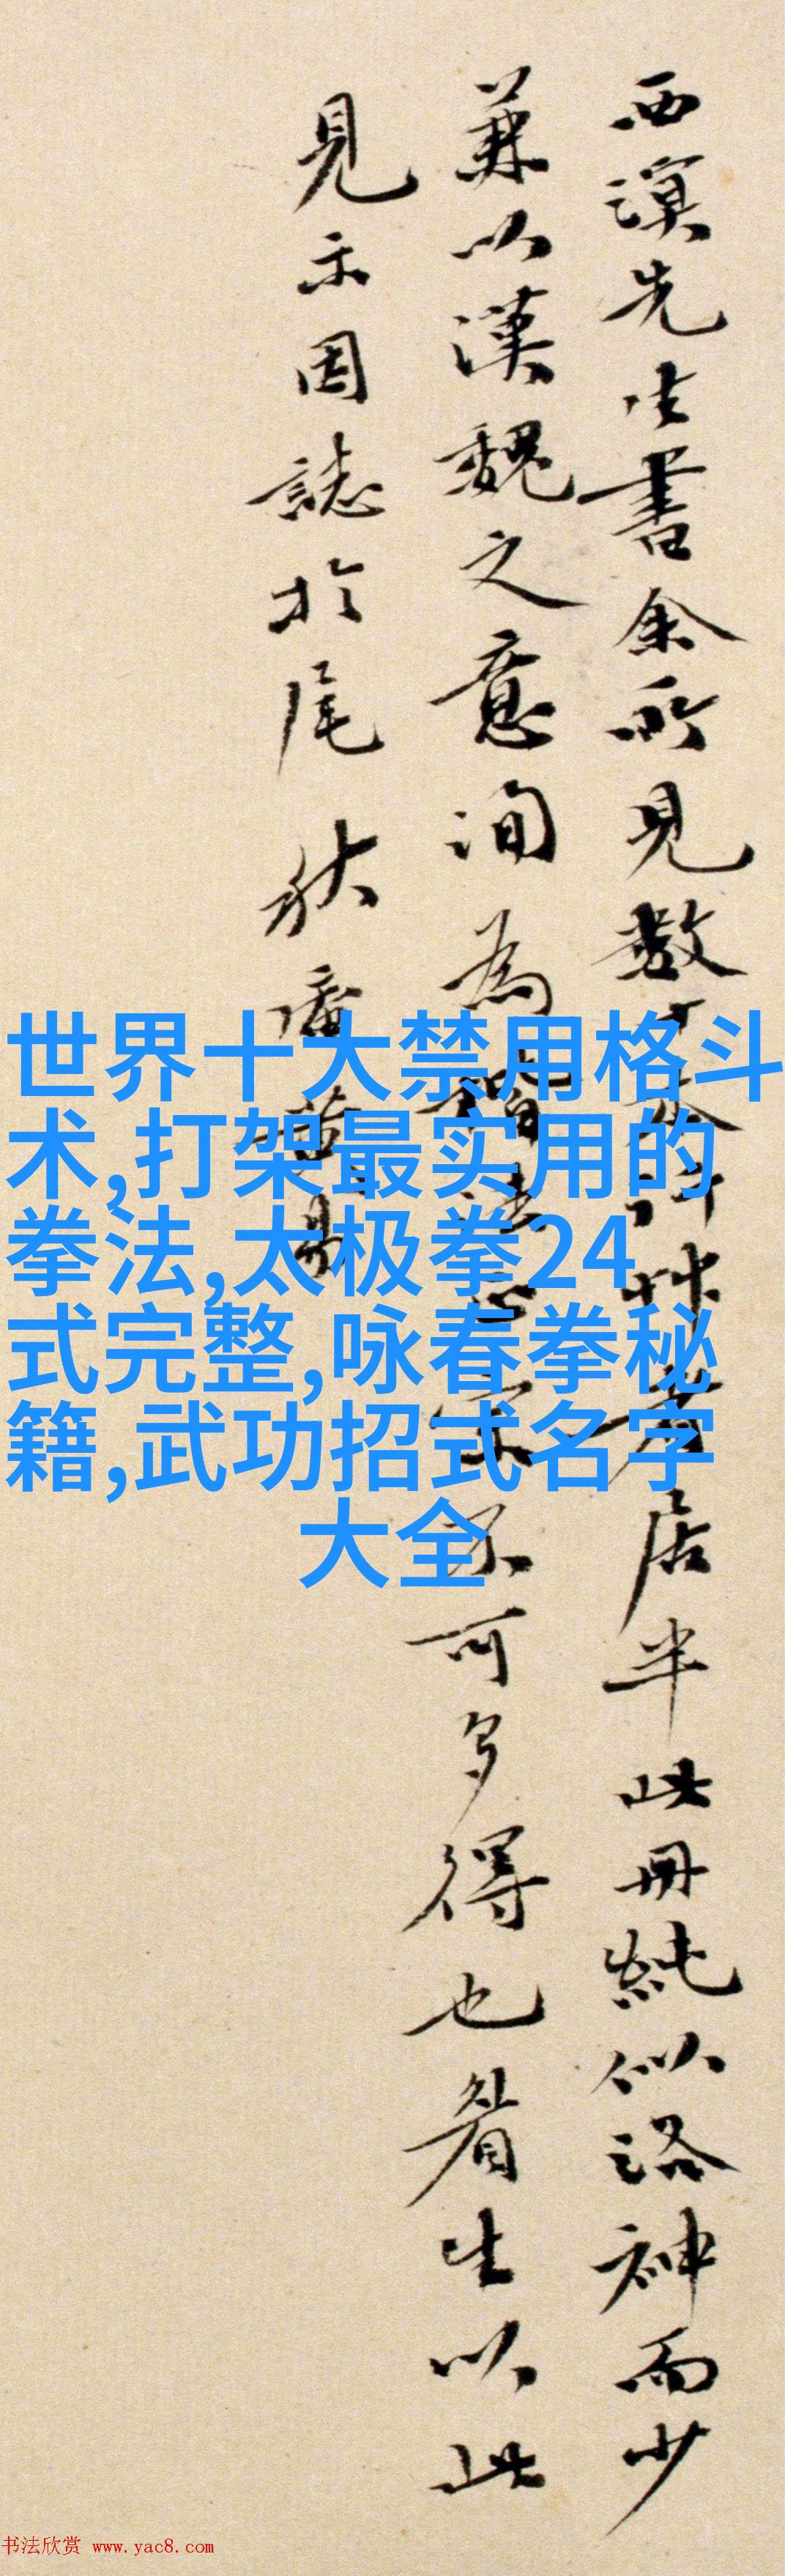 西溟先生書余所見數十本行草者居半此冊純似洛神而少
兼以漢魏之意洵為楷法正宗不可多得也眉生以此
見示因誌於尾 秋盦黃易
世界十大禁用格斗
术,打架最实用的
拳法,太极拳24
式完整,咏春拳秘
籍,武功招式名字
大全
书法欣赏 www.yac8.com